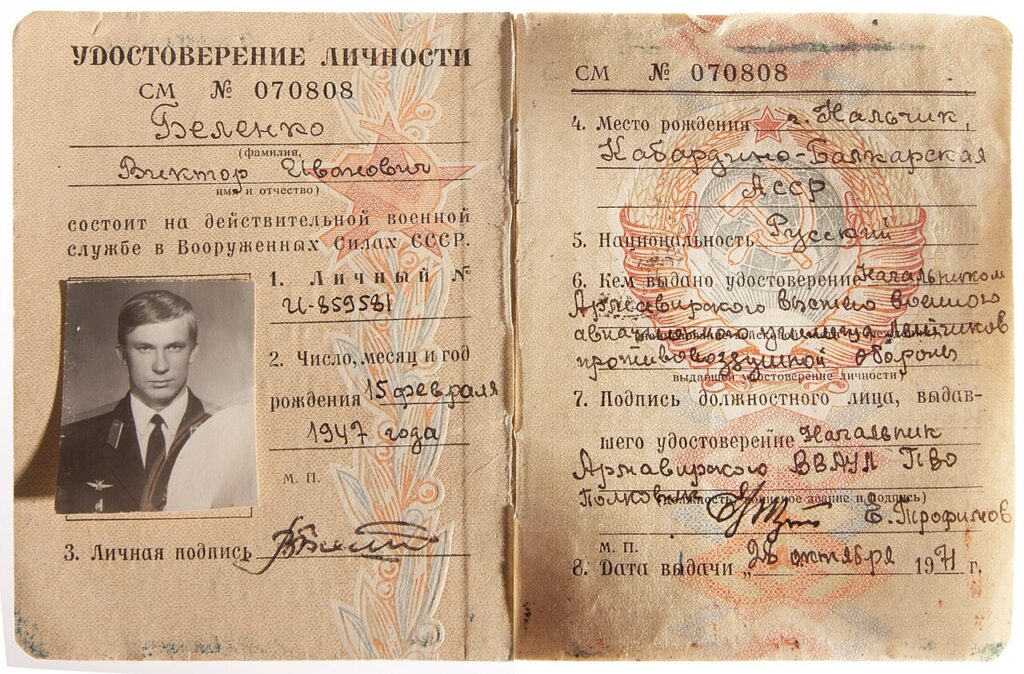 УДОСТОВЕРЕНИЕ ЛИЧНОСТИ
СМ № 070808
Беленко
(фамилия,
Виктор Иванович
имя и отчество)
состоит на действительной военной
службе в Вооруженных Силах СССР.
1. Личный №
И-859581
2. Число, месяц и год
рождения 15 февраля
1947 года
М. П.
3. Личная подпись
СМ № 070808
4. Место рождения г. Нальчик,
Кабардино-Балкарская
АССР
5. Национальность Русский
6. Кем выдано удостоверение Начальником
Армавирского высшего военного
авиационного училища лётчиков
противовоздушной обороны
выдавшей удостоверение личности)
7. Подпись должностного лица, выдав-
шего удостоверение Начальник
Армавирского ВВАУЛ ПВО
Полковник
(должность, воинское звание и подпись)
Е. Трофимов
М. П.
8. Дата выдачи „ 28 октября 1971 г.